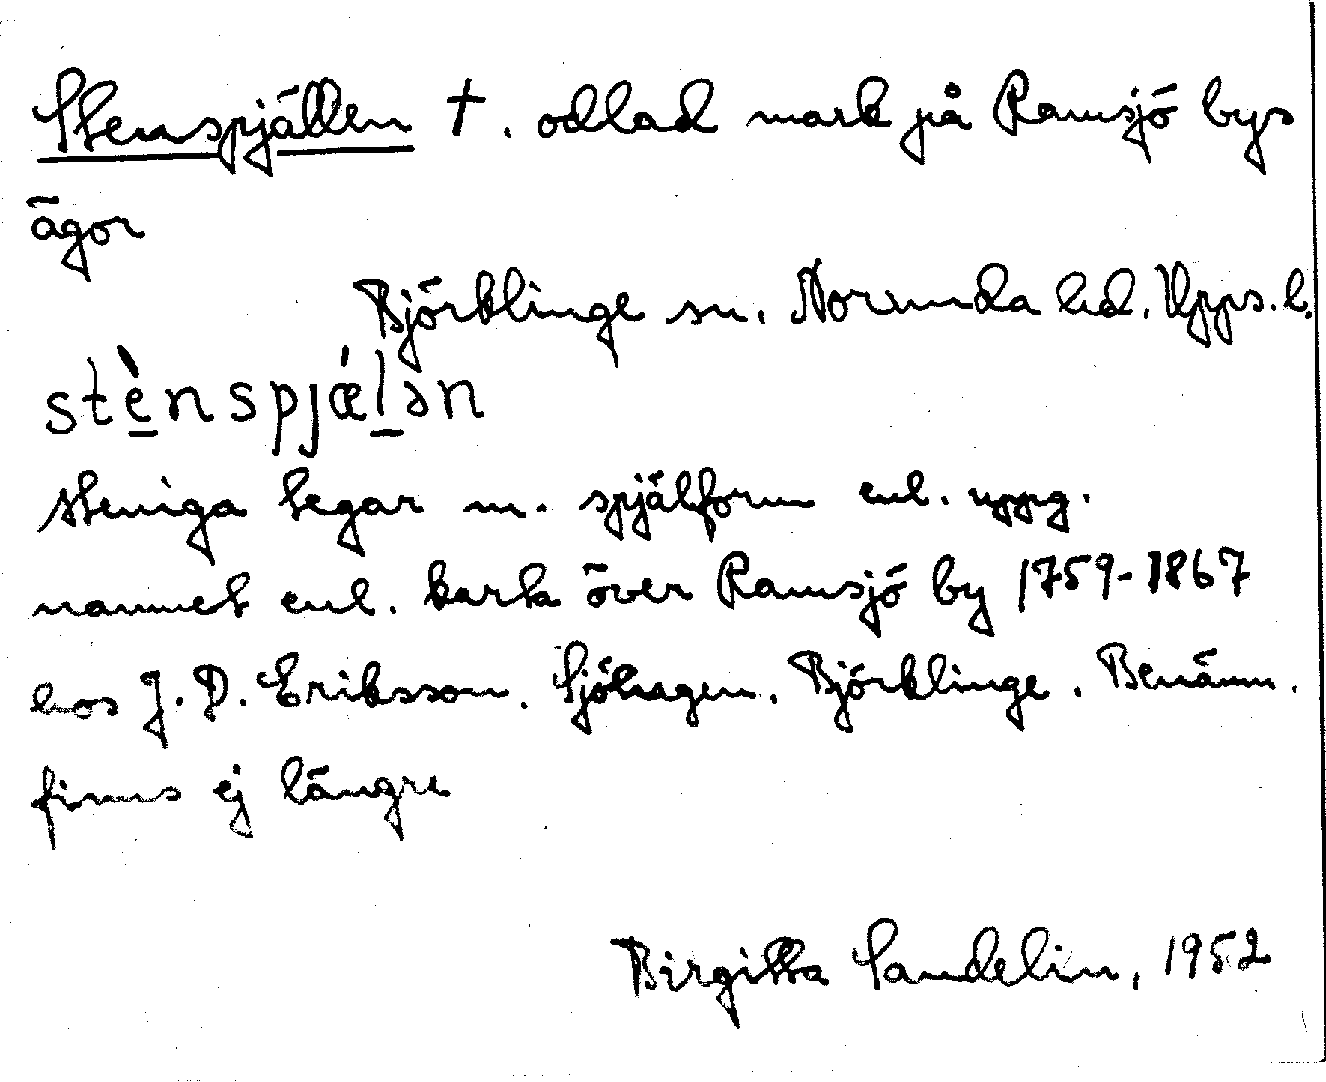 Stenspjällen †. odlad mark på Ramsjö bys
ägor
Björklinge sn. Norunda hd. Upps. l.
stè̠nspjǽl̠ən
steniga tegar m. spjälform enl. uppg.
namnet enl. karta över Ramsjö by 1759-1867
hos J. D. Eriksson. Sjöhagen. Björklinge. Benämn.
finns ej längre
Birgitta Sandelin, 1952